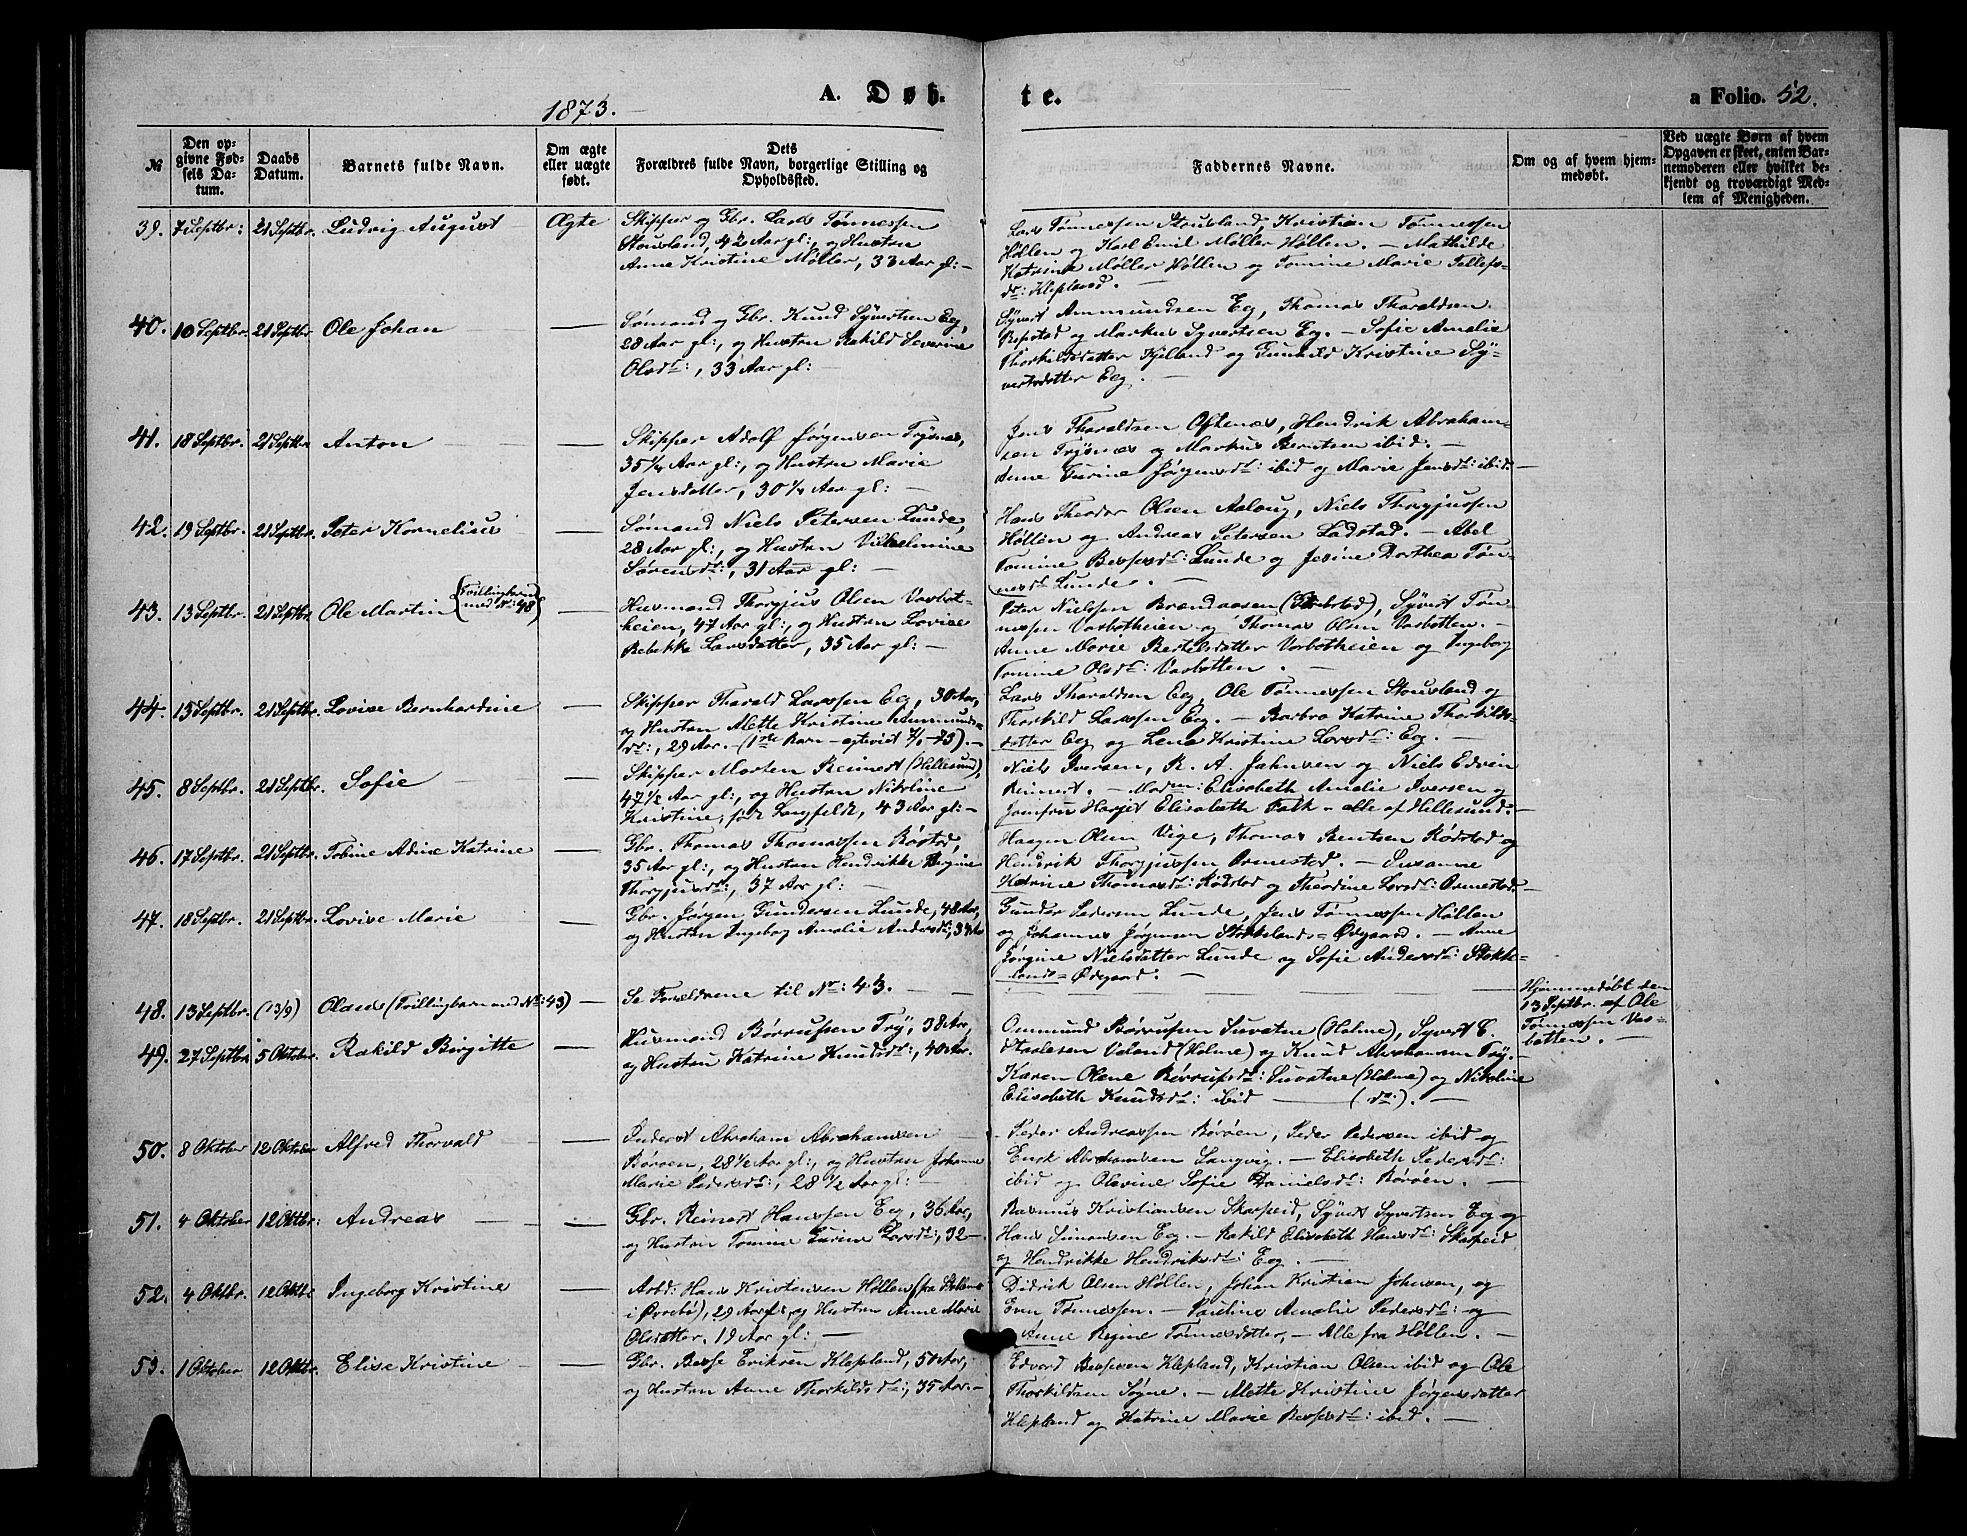 1873.
A. Døb-
te.
a Folio. 52.
№
Den op-
givne Fød-
sels Da-
tum.
Daabs
Datum.
Barnets fulde Navn.
Om ægte
eller uægte
født.
Dets
Forældres fulde Navn, borgerlige Stilling og
Opholdssted.
Faddernes Navne.
Om og af hvem hjem-
medøbt.
Ved uægte Børn af hvem
Opgaven er skeet, enten Bar-
nemoderen eller hvilket be-
kjendt og troværdigt Med-
lem af Menigheden.
39. 7 Septbr: 21 Septbr. Ludvig August Ægte
Skipper og Gbr. Lars Tønnessen
Stousland, 42 Aar gl:, og Hustru
Anne Kristine Møller, 33 Aar gl: —
Lars Tønnessen Stousland, Kristian Tønnessen
Høllen og Karl Emil Møller Høllen. — Mathilde
Katrine Møller Høllen og Tomine Marie Tellefs-
dr: Klepland. —
40. 10 Septbr. 21 Septbr Ole Johan —
Sømand og Gbr. Knud Syvertsen Eeg,
28 Aar gl:, og Hustru Rakild Severine
Olsdr:, 33 Aar gl: —
Syvert Ammundsen Eg, Thomas Tharaldsen
Repstad og Markus Syvertsen Eg. — Sofie Amalie
Thorkildsdatter Kjelland og Gunhild Kristine Sy-
vertsdatter Eeg. —
41. 18 Septbr. 21 Septbr Anton —
Skipper Adolf Jørgensen Trysnes,
35 1/4 Aar gl:, og Hustru Marie
Jensdatter, 30 1/4 Aar gl: —
Jens Tharaldsen Oftenæs, Hendrik Abraham-
sen Trysnæs og Markus Berntsen ibid. —
Anne Turine Jørgensdr: ibid og Marie Jensdr: ibid. —
42. 19 Septbr. 21 Septbr. Peter Kornelius —
Sømand Niels Petersen Lunde,
28 Aar gl:, og Hustru Vilhelmine
Sørensdr:, 31 Aar gl: —
Hans Theodor Olsen Aaloug, Niels Thorgjussen
Høllen og Andreas Petersen Ladstad. — Abel
Tomine Bessesdr: Lunde og Jesine Dorthea Tøn-
nesdr Lunde. —
43. 13 Septbr. 21 Septbr Ole Martin (Tvillingbarn
med Nr: 48) —
Husmand Thorgjus Olsen Vasbot-
heien, 47 Aar gl:, og Hustru Lovise
Rebekke Larsdatter, 35 Aar gl: —
Peter Nielssen Brændaasen, Syvert Tøn-
nessen Vasbotheien og Thomas Olsen Vasbotten. —
Anne Marie Bertelsdatter Vasbotheien og Ingeborg
Tomine Olsdr: Vasbotten. —
44. 13 Septbr. 21 Septbr. Lovise Bernhardine —
Skipper Tharald Larssen Eeg, 30 Aar,
og Hustru Mette Kristine Ammunds-
dr:, 29 Aar. (1ste Barn — egteviet 7/1-73). —
Lars Tharaldsen Eeg, Ole Tønnessen Stousland og
Thorkild Larssen Eeg. — Barbro Katrine Thorkilds-
datter Eeg og Lene Kristine Larsdr: Eeg. —
45. 8 Septbr. 21 Septbr. Sofie —
Skipper Morten Reinert (Hillesund),
47 1/2 Aar gl:, og Hustru Nikoline
Kristine, født Langfeldt, 43 Aar gl: —
Niels Iversen, R. A. Jahnsen og Niels Edvin
Reinert. — Madm: Elisabeth Amalie Iversen og
Jomfru Harjet Elisabeth Falk — alle af Hillesund. —
46. 17 Septbr. 21 Septbr. Tobine Adine Katrine —
Gbr. Thomas Thomassen Røstad,
35 Aar gl:, og Hustru Hendrikke Regine
Thorgjusdr:, 37 Aar gl: —
Haagen Olsen Vige, Thomas Berntsen Rødstad og
Hendrik Thorgjussen Ormestad. — Susanne
Katrine Thomasdr: Rødstad og Theodine Larsdr: Ormestad. —
47. 18 Septbr. 21 Septbr. Lovise Marie —
Gbr. Jørgen Gundersen Lunde, 48 Aar,
og Hustru Ingeborg Amalie Andersdr:, 37 Aar
Gunder Pedersen Lunde, Jens Tønnessen Høllen
og Johannes Jørgensen Stokkelands-Ødegaard. — Anne
Jørgine Nielsdatter Lunde og Sofie Andersdr: Stokke-
lands-Ødegaard. —
48. 13 Septbr. (13/9) Olaus (Tvillingbarn med Nr: 43) —
Se Forældrene til Nr: 43. —
Hjemmedøbt den
13 Septbr. af Ole
Tønnessen Vas-
botten. —
49. 27 Septbr 5 Oktober. Rakild Birgitte —
Husmand Børrufsen Try, 38 Aar,
og Hustru Katrine Knudsdr:, 40 Aar.
Ommund Børrufsen Suvatne (Holme), Syvert C.
Staalesen Valand (Holme) og Knud Abrahamsen Try. —
Karen Olene Børrufsdr: Suvatne (Holme) og Nikoline
Elisabeth Knudsdr: ibid — (dr:). —
50. 8 Oktober 12 Oktober Alfred Thorvald —
Inderst Abraham Abrahamsen
Børøen, 28 1/2 Aar gl:, og Hustru Johanne
Marie Pedersdr:, 28 1/2 Aar gl: —
Peder Andreassen Børøen, Peder Pedersen ibid og
Enok Abrahamsen Langvig. — Elisabeth Pedersdr:
ibid og Olevine Sofie Danielsdr: Børøen. —
51. 4 Oktober 12 Oktbr: Andreas —
Gbr. Reinert Hanssen Eg, 36 Aar,
og Hustru Tomine Turine Larsdr:, 32 —.
Rasmus Kristiansen Skarpeid, Syvert Syvertsen Eeg og
Hans Simonsen Eg. — Rakild Elisabeth Hansdr: Skarpeid
og Hendrikke Hendriksdr: Eeg. —
52. 4 Oktbr. 12 Oktbr Ingeborg Kristine —
Arbd: Hans Kristensen Høllen (fra
i Øvrebø), 29 Aar gl:, og Hustru Anne Marie
Olsdatter, 19 Aar gl: —
Didrik Olsen Høllen, Johan Kristian Johnsen, og
Even Tønnessen. — Pauline Amalie Pedersdr: og
Anne Regine Tønnesdatter, — Alle fra Høllen. —
53. 1 Oktober 12 Oktbr. Elise Kristine —
Gbr. Besse Eriksen Klepland, 50 Aar,
og Hustru Anne Thorkildsdr:, 35 Aar. —
Edvard Bessesen Klepland, Kristian Olsen ibid og Ole
Thorkildsen Søgne. — Mette Kristine Jørgensdatter
Klepland og Katrine Marie Bessesdr: ibid. —